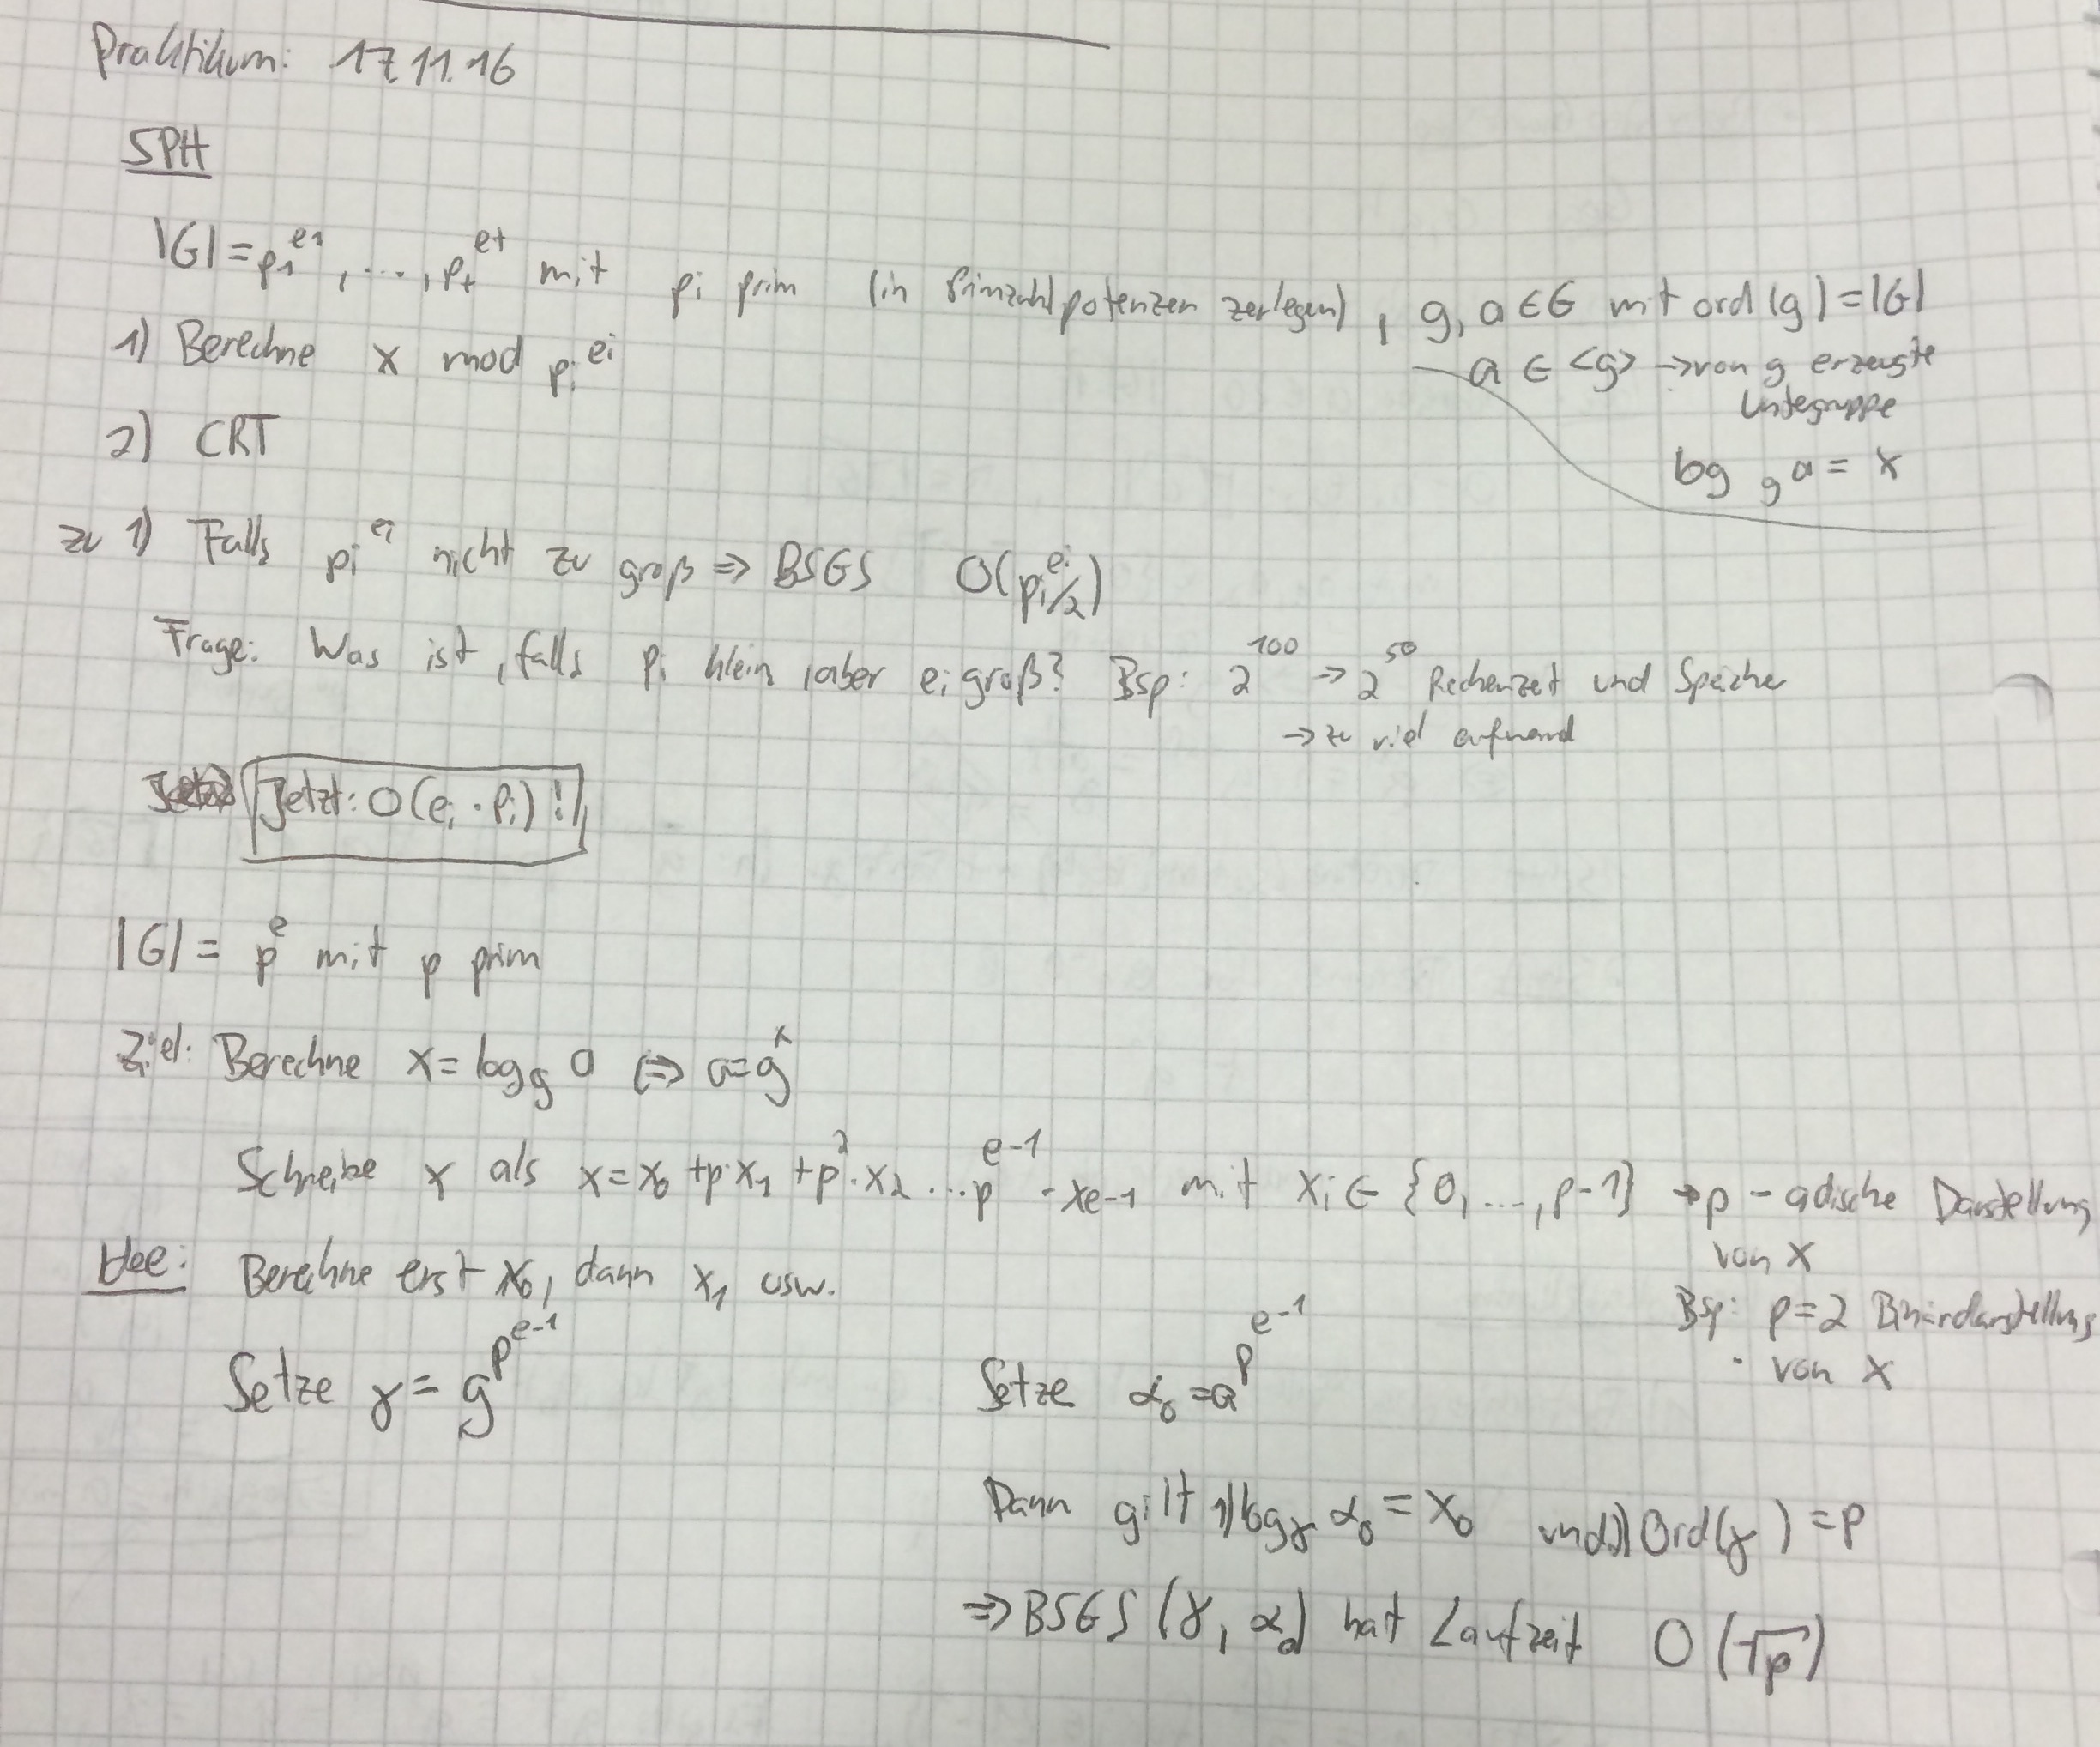 Praktikum: 17.11.16
SPH
|G| = p₁^e1, ..., pₜ^et mit pi prim (in Primzahlpotenzen zerlegen), g, a ∈ G mit ord(g) = |G|
a ∈ <g> → von g erzeugte
Untegruppe
log_g a = x
1) Berechne x mod pi^ei
2) CRT
zu 1) Falls pi^ei nicht zu groß ⇒ BSGS O(pi^ei/2)
Frage: Was ist, falls pi klein, aber ei groß? Bsp: 2^100 → 2^50 Rechenzeit und Speicher
→ zu viel aufwand
Jetzt: O(ei · pi)!
|G| = p^e mit p prim
Ziel: Berechne x = log_g a ⇔ a = g^x
Schreibe x als x = x₀ + p·x₁ + p²·x₂ ... p^e-1 · xe-1 mit xi ∈ {0, ..., p-1} → p-adische Darstellung
von x
Bsp: p=2 Binärdarstellung
von x
Idee: Berechne erst x₀, dann x₁ usw.
Setze γ = g^p^e-1 Setze α₀ = a^p^e-1
Dann gilt 1) log_γ α₀ = x₀ und 2) Ord(γ) = p
⇒ BSGS (γ, α₀) hat Laufzeit O(√p)